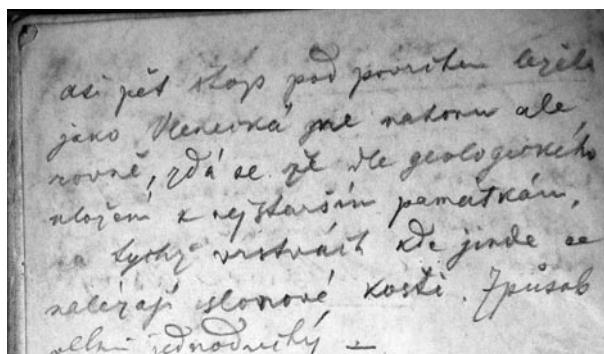 asi pět stop pod povrchem ležela
jako Vlenecká ne nahoru ale
rovně, zdá se že dle geologického
uložení k nejstarším památkám,
tychž vrstvách kde jinde se
nalézají slonové kosti. Způsob
velmi jednoduchý —